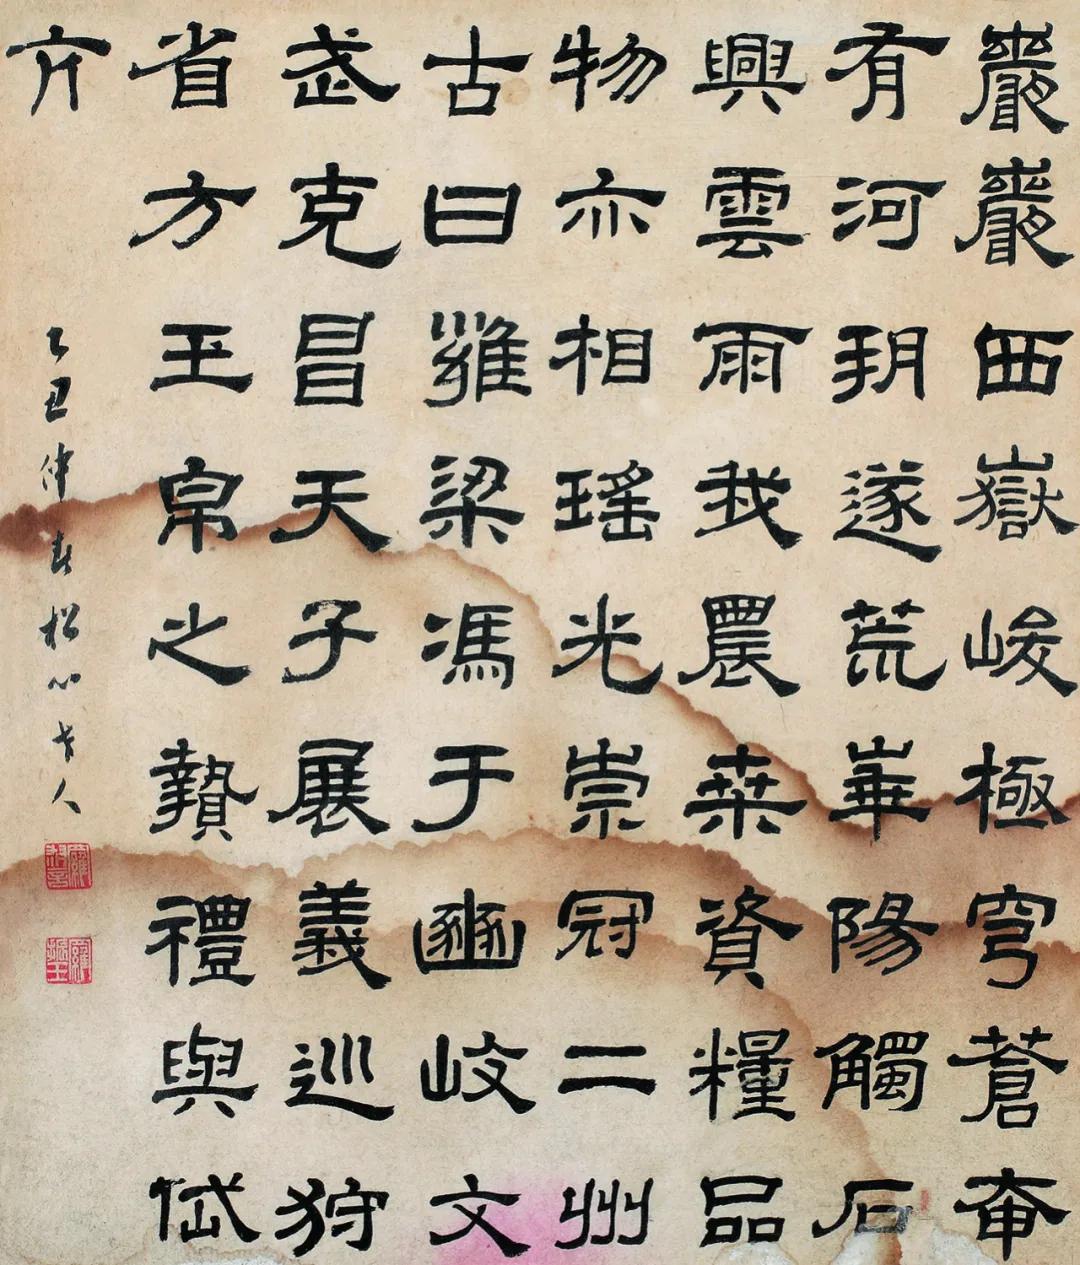 巖巖西嶽峻極穹蒼奄
有河朔遂荒華陽觸石
興雲雨我農桒資糧品
物亦相瑤光崇冠二州
古曰雍梁馮于豳岐文
武克昌天子展義巡狩
省方玉帛之贄禮與岱
亢
乙丑仲春松心老人